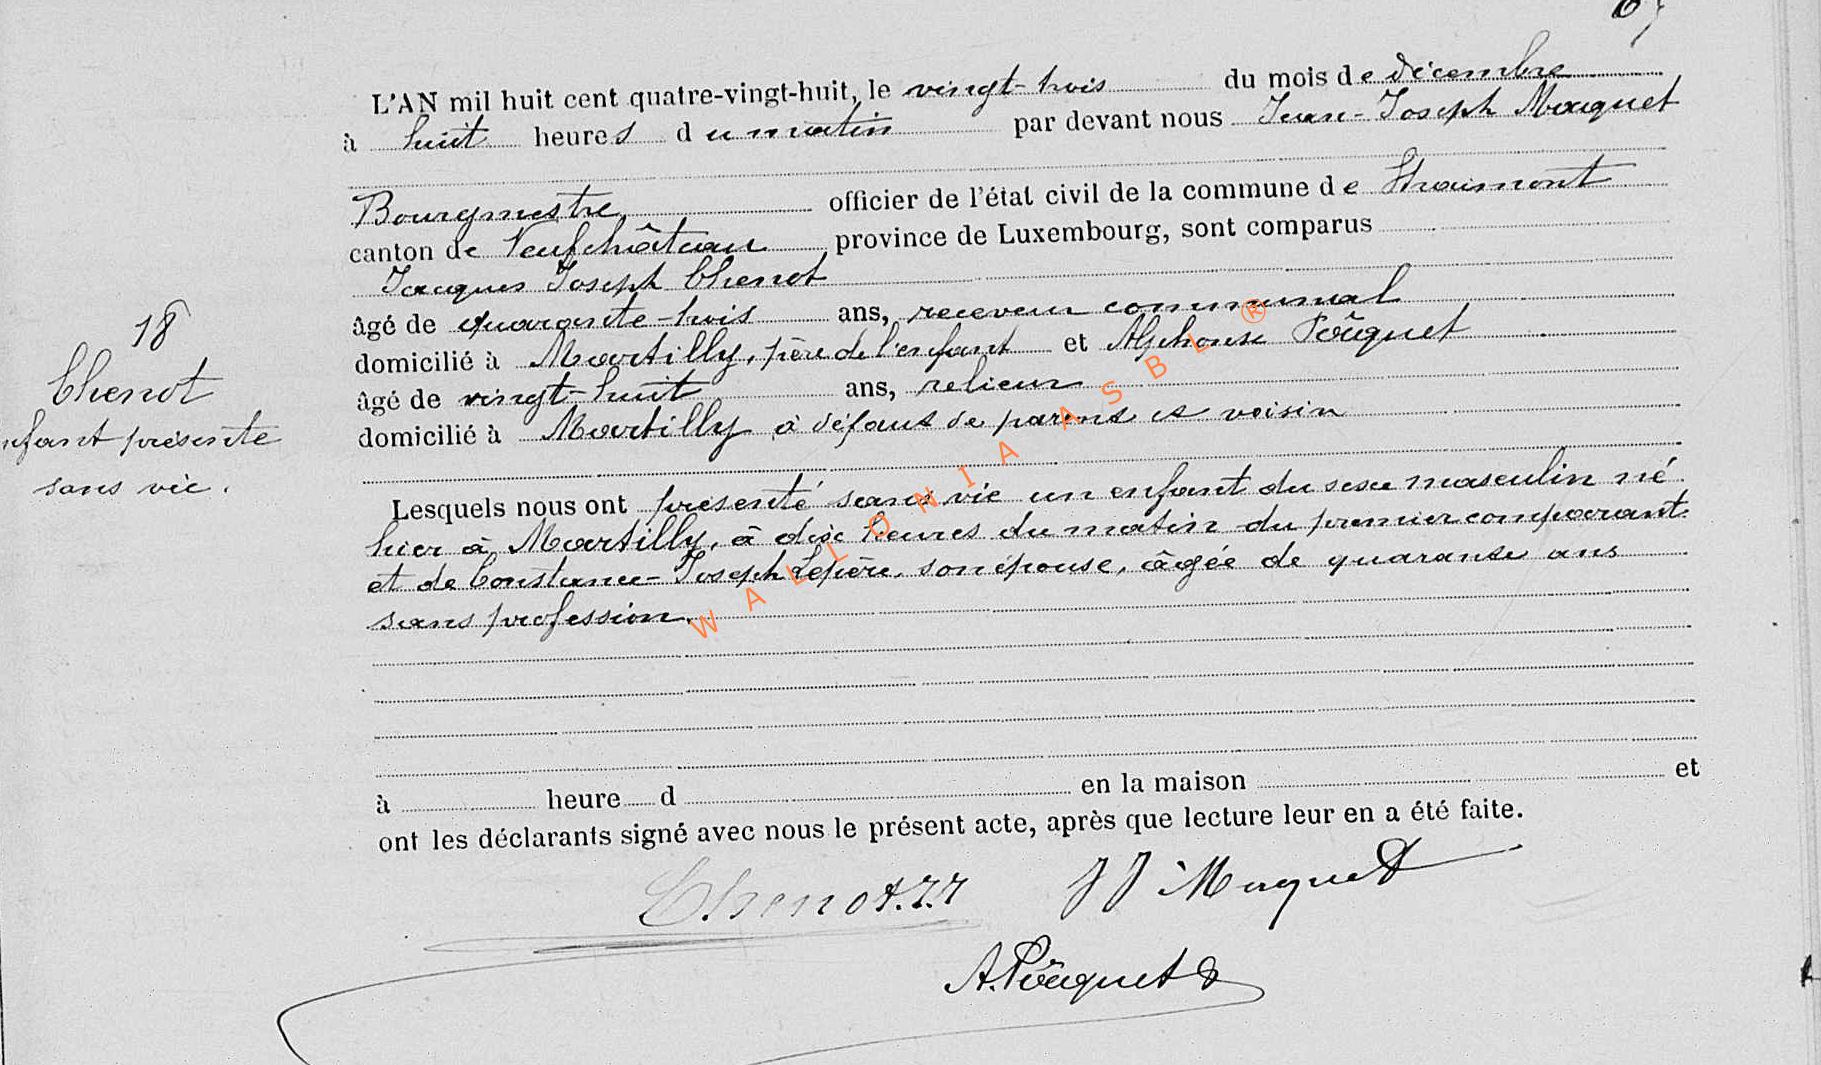 67
L'AN mil huit cent quatre-vingt-huit, le vingt-trois du mois de décembre
à huit heures du matin par devant nous Jean-Joseph Maquet
Bourgmestre officier de l'état civil de la commune de Straimont
canton de Neufchâteau province de Luxembourg, sont comparus
Jacques Joseph Chenot
âgé de quarante-trois ans, receveur communal
domicilié à Martilly, père de l'enfant et Alphonse Pôquet
âgé de vingt-huit ans, relieur
domicilié à Martilly, à défaut de parent et voisin
18
Chenot
enfant présenté
sans vie.
Lesquels nous ont présenté sans vie un enfant du sexe masculin né
hier à Martilly, à dix heures du matin du premier comparant
et de Constance-Joseph Lepère, son épouse, âgée de quarante ans
sans profession.
à heure d en la maison et
ont les déclarants signé avec nous le présent acte, après que lecture leur en a été faite.
Chenot.J.J JJ Maquet
A. Pôquet
WALLONIA ASBL ®